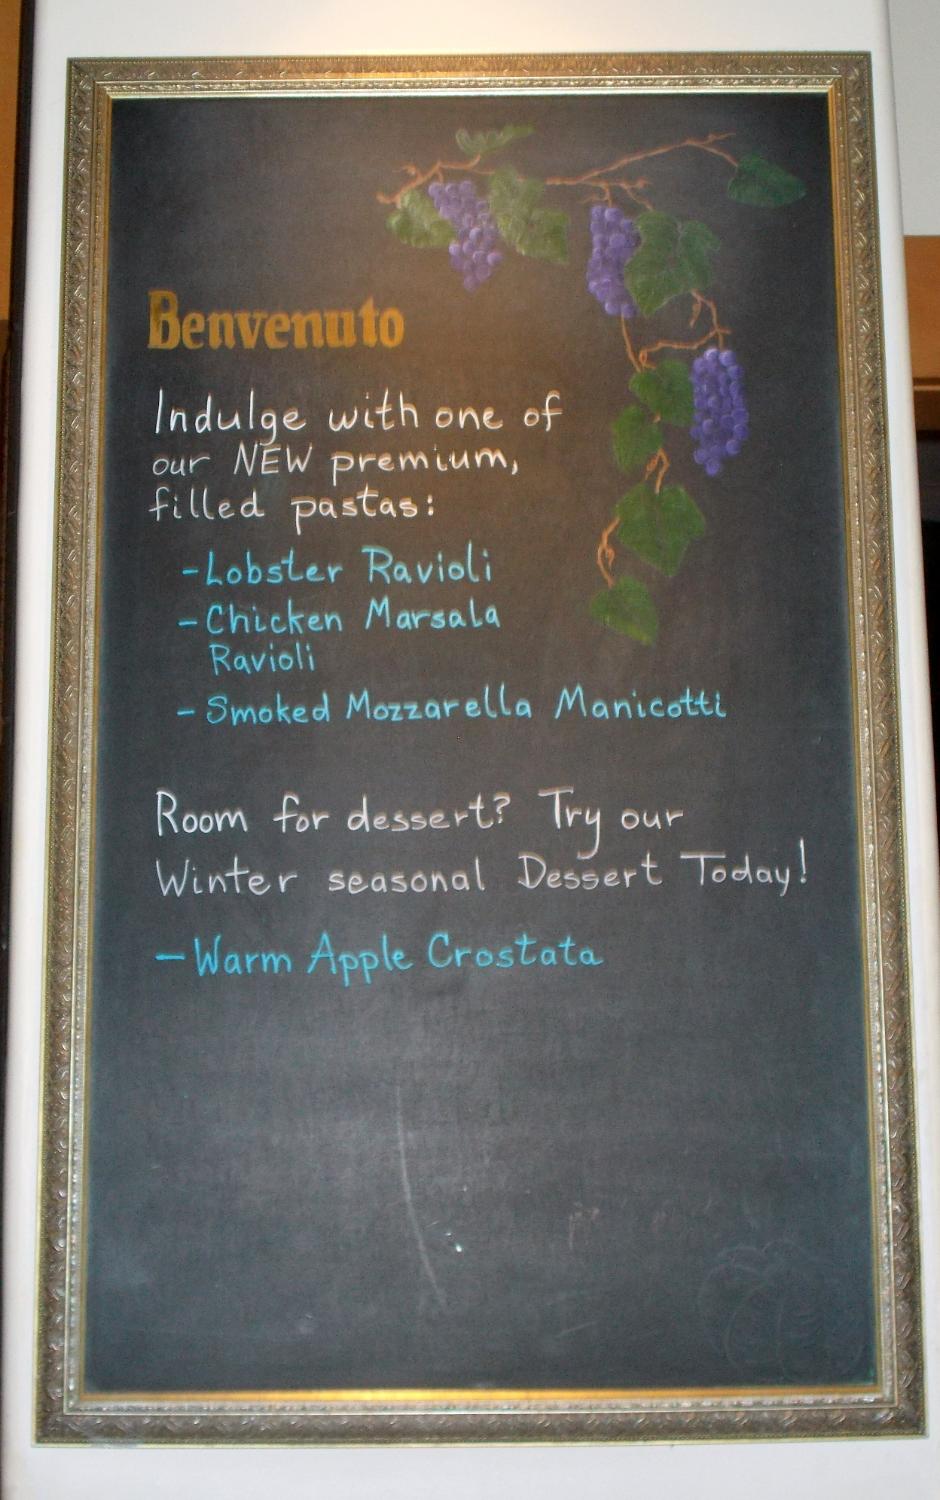 Benvenuto
Indulge with one of
our NEW premium,
filled pastas:
-Lobster Ravioli
-Chicken Marsala
Ravioli
-Smoked Mozzarella Manicotti
Room for dessert? Try our
Winter seasonal Dessert Today!
-Warm Apple Crostata